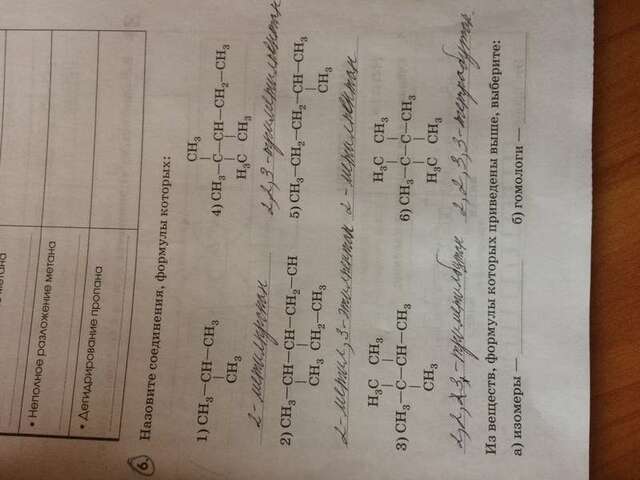 • Неполное разложение метана
• Дегидрирование пропана
6. Назовите соединения, формулы которых:
1) CH₃—CH—CH₃
CH₃
2-метилпропан
2) CH₃—CH—CH—CH₂—CH
CH₃ CH₂—CH₃
2-метил, 3-этилпентан
H₃C CH₃
3) CH₃—C—CH—CH₃
CH₃
CH₃
4) CH₃—C—CH—CH₂—CH₃
H₃C CH₃
2,2,3-триметилпентан
5) CH₃—CH₂—CH₂—CH—CH₃
CH₃
2-метилпентан
H₃C CH₃
6) CH₃—C—C—CH₃
H₃C CH₃
Из веществ, формулы которых приведены выше, выберите:
а) изомеры —
б) гомологи —